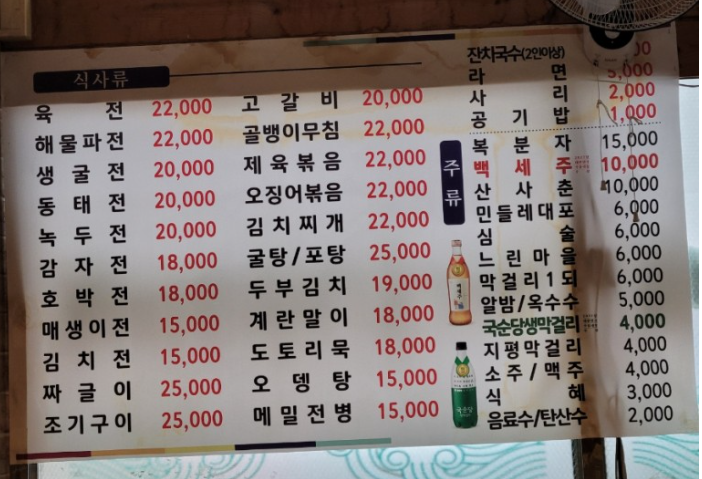 식사류
육 전 22,000
해물파전 22,000
생 굴 전 20,000
동 태 전 20,000
녹 두 전 20,000
감 자 전 18,000
호 박 전 18,000
매생이전 15,000
김 치 전 15,000
짜 글 이 25,000
조기구이 25,000
고 갈 비 20,000
골뱅이무침 22,000
제 육 볶 음 22,000
오징어볶음 22,000
김 치 찌 개 22,000
굴탕/포탕 25,000
두 부 김 치 19,000
계 란 말 이 18,000
도 토 리 묵 18,000
오 뎅 탕 15,000
메 밀 전 병 15,000
잔치국수(2인이상)
라 면 5,000
사 리 2,000
공 기 밥 1,000
주류
복 분 자 15,000
백 세 주 10,000
산 사 춘 10,000
민들레대포 6,000
심 술 6,000
느 린 마 을 6,000
막걸리1되 6,000
알밤/옥수수 5,000
국순당생막걸리 4,000
지평막걸리 4,000
소주/맥주 4,000
식 혜 3,000
음료수/탄산수 2,000